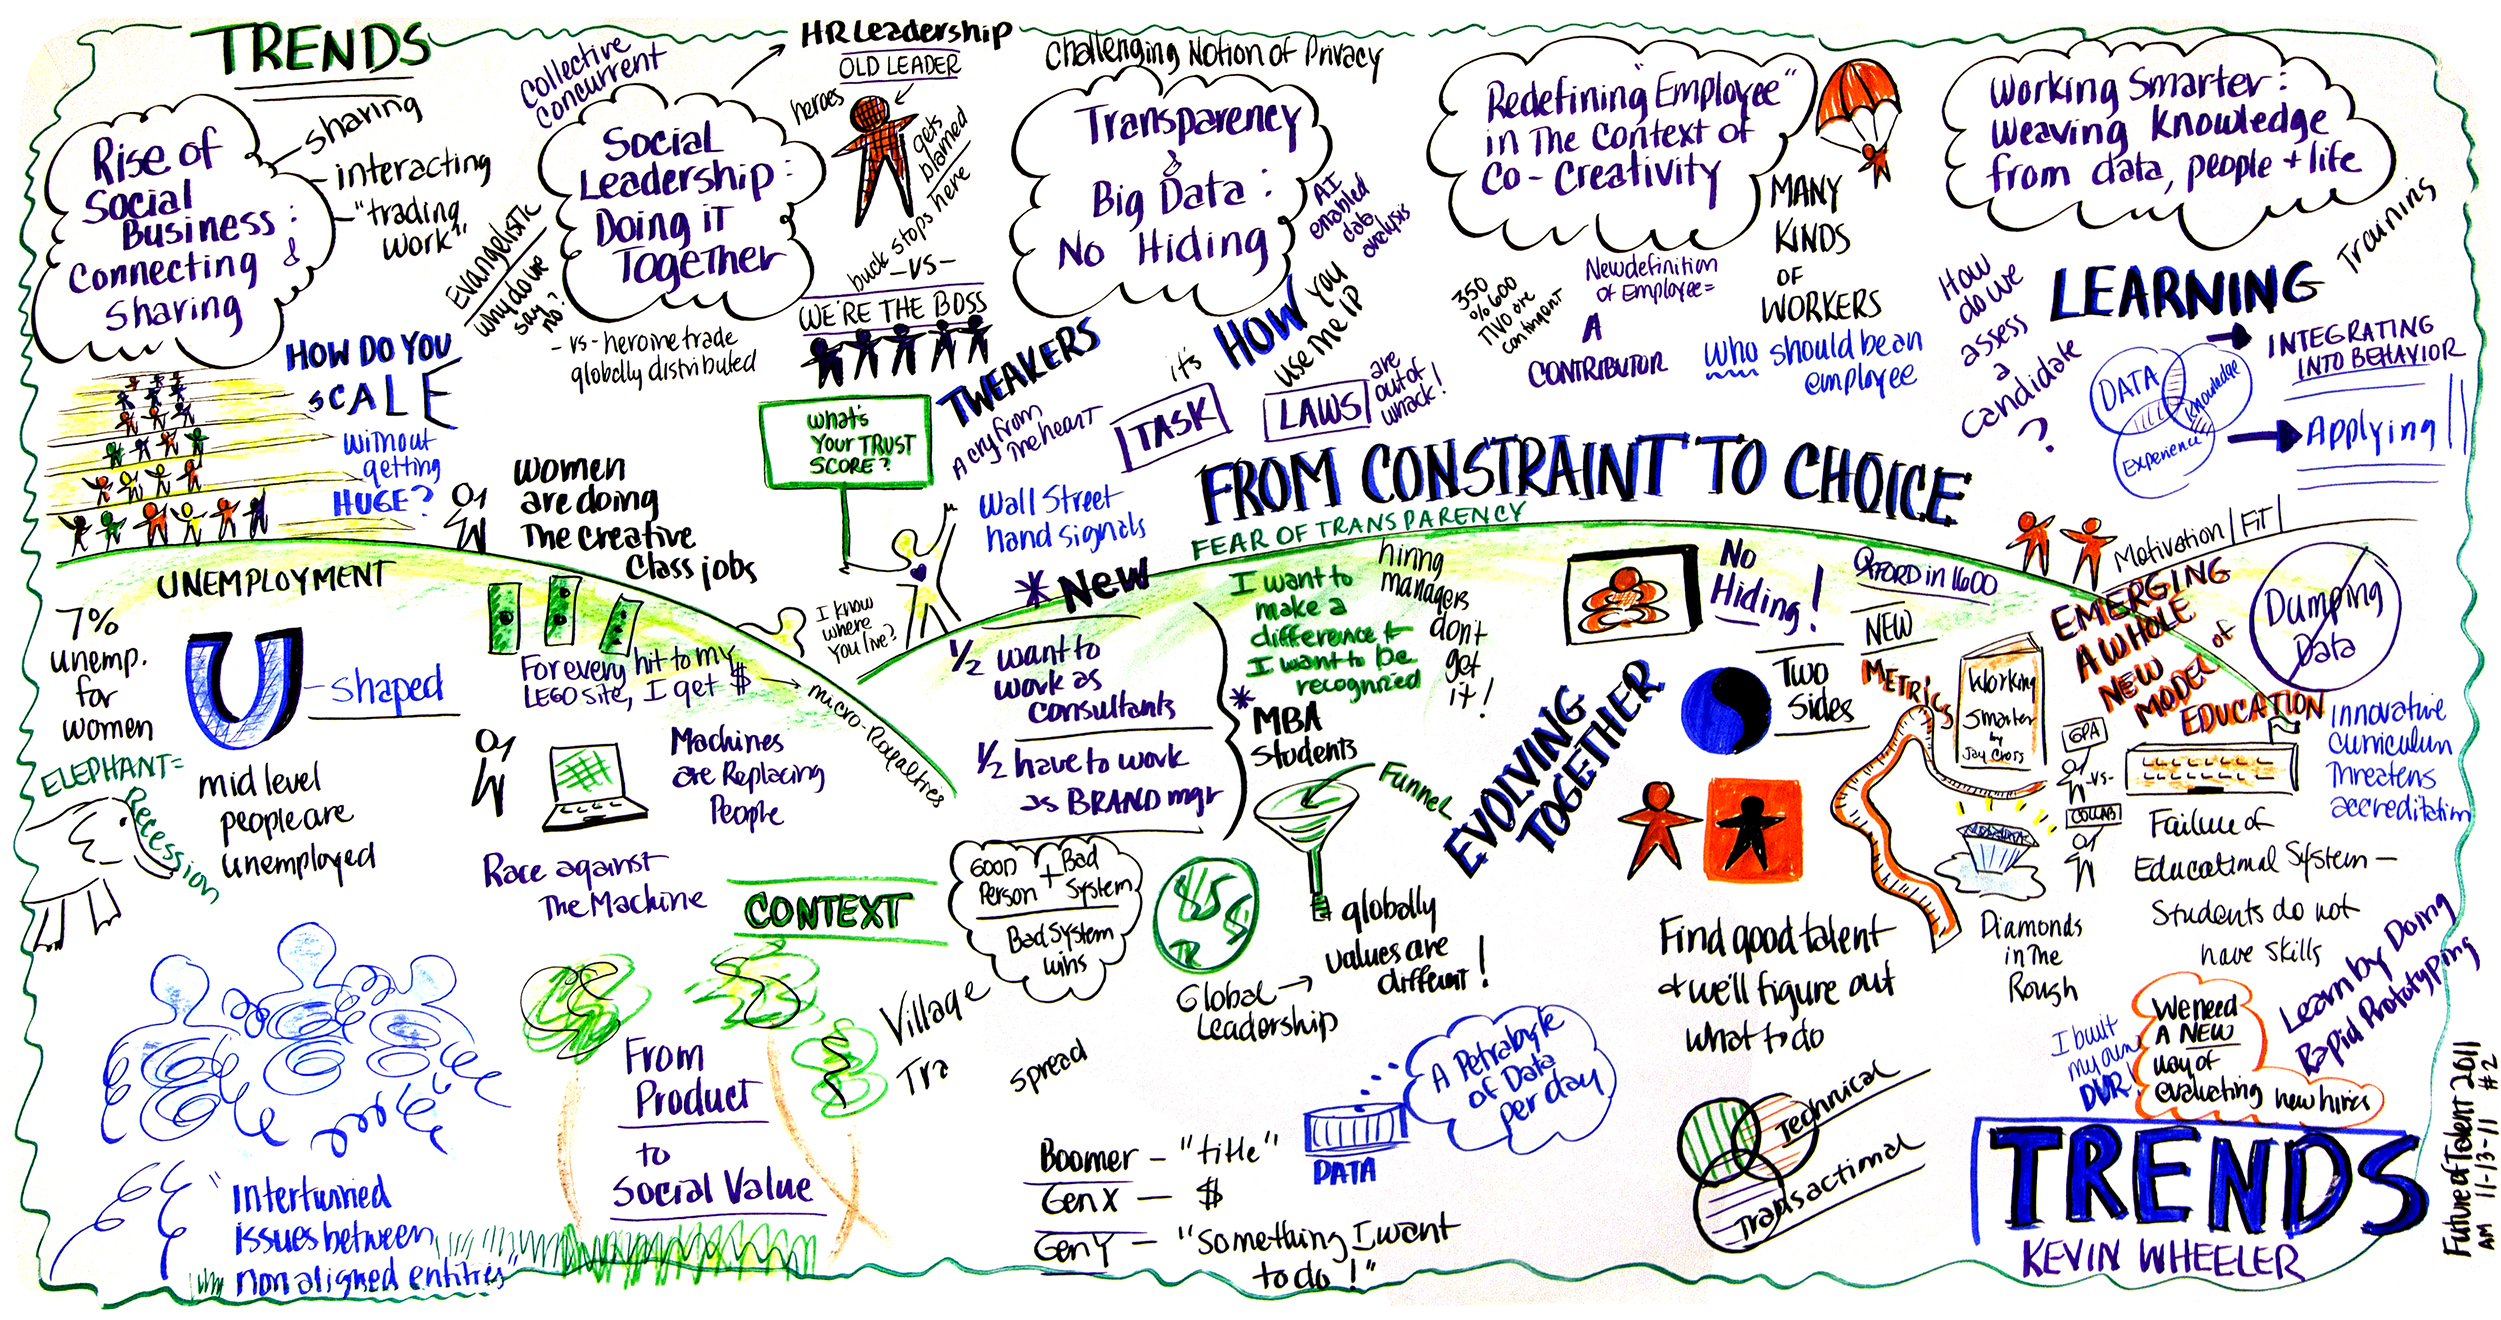 TRENDS
Rise of
Social
Business:
Connecting &
Sharing
sharing
interacting
"trading
work"
HOW DO YOU
SCALE
without
getting
HUGE?
Collective
Concurrent
Social
Leadership:
Doing iT
Together
Evangelistic
why do we
say
no?
- vs - heroine trade
globally distributed
HR Leadership
OLD LEADER
heroes
gets
blamed
buck stops here
- VS -
WE'RE THE BOSS
Challenging Notion of Privacy
Transparency
&
Big Data:
No Hiding
AI
enabled
data
analysis
TWEAKERS
A cry from
the heart
it's
TASK
HOW you
use the IP
LAWS
are
out of
whack!
Redefining "Employee"
in The Context of
Co-Creativity
350
% 600
TIVO are
contingent
New definition
of Employee =
A
CONTRIBUTOR
MANY
KINDS
OF
WORKERS
Who should be an
employee
Working Smarter:
Weaving Knowledge
from data, people + life
Training
How
do we
assess
a
candidate
?
LEARNING
INTEGRATING
INTO BEHAVIOR
DATA
Knowledge
Experience
Applying
Motivation / FiT /
women
are doing
The creative
Class jobs
What's
Your TRUST
SCORE?
Wall Street
hand signals
I know
where
You live?
FROM CONSTRAINT TO CHOICE
FEAR OF TRANSPARENCY
UNEMPLOYMENT
7%
unemp.
for
women
U
-shaped
ELEPHANT=
Recession
mid level
people are
unemployed
For every hit to my
LEGO site, I get $
micro-Royalties
Machines
are Replacing
People
Race against
The Machine
* New
1/2 want to
work as
consultants
1/2 have to work
as BRAND mgr
*
MBA
Students
I want to
make a
difference +
I want to be
recognized
hiring
managers
don't
get
it!
Funnel
EVOLVING
TOGETHER
No
Hiding!
OXFORD in 1600
NEW
METRICS
Two
Sides
Working
Smarter
by
Jay Cross
EMERGING
A WHOLE
NEW
MODEL of
EDUCATION
Dumping
Data
GPA
-vs-
COLLAB
innovative
curriculum
threatens
accreditation
Failure of
Educational System -
Students do not
have skills
Diamonds
in The
Rough
Find good talent
+ we'll figure out
what to do
CONTEXT
GOOD
Person
+
Bad
System
Bad System
wins
US
TR
globally
values are
different!
Global
Leadership
Village
Tra
spread
From
Product
to
Social Value
"Intertwined
issues between
non aligned entities"
Boomer - "title"
Gen X - $
Gen Y - "Something I want
to do!"
A Petrabyte
of Data
per day
DATA
Technical
Transactional
I built
my own
DVR!
We need
A NEW
way of
evaluating new hires
Learn by Doing
Rapid Prototyping
TRENDS
KEVIN WHEELER
Future of Talent 2011
AM 11-13-11 #2